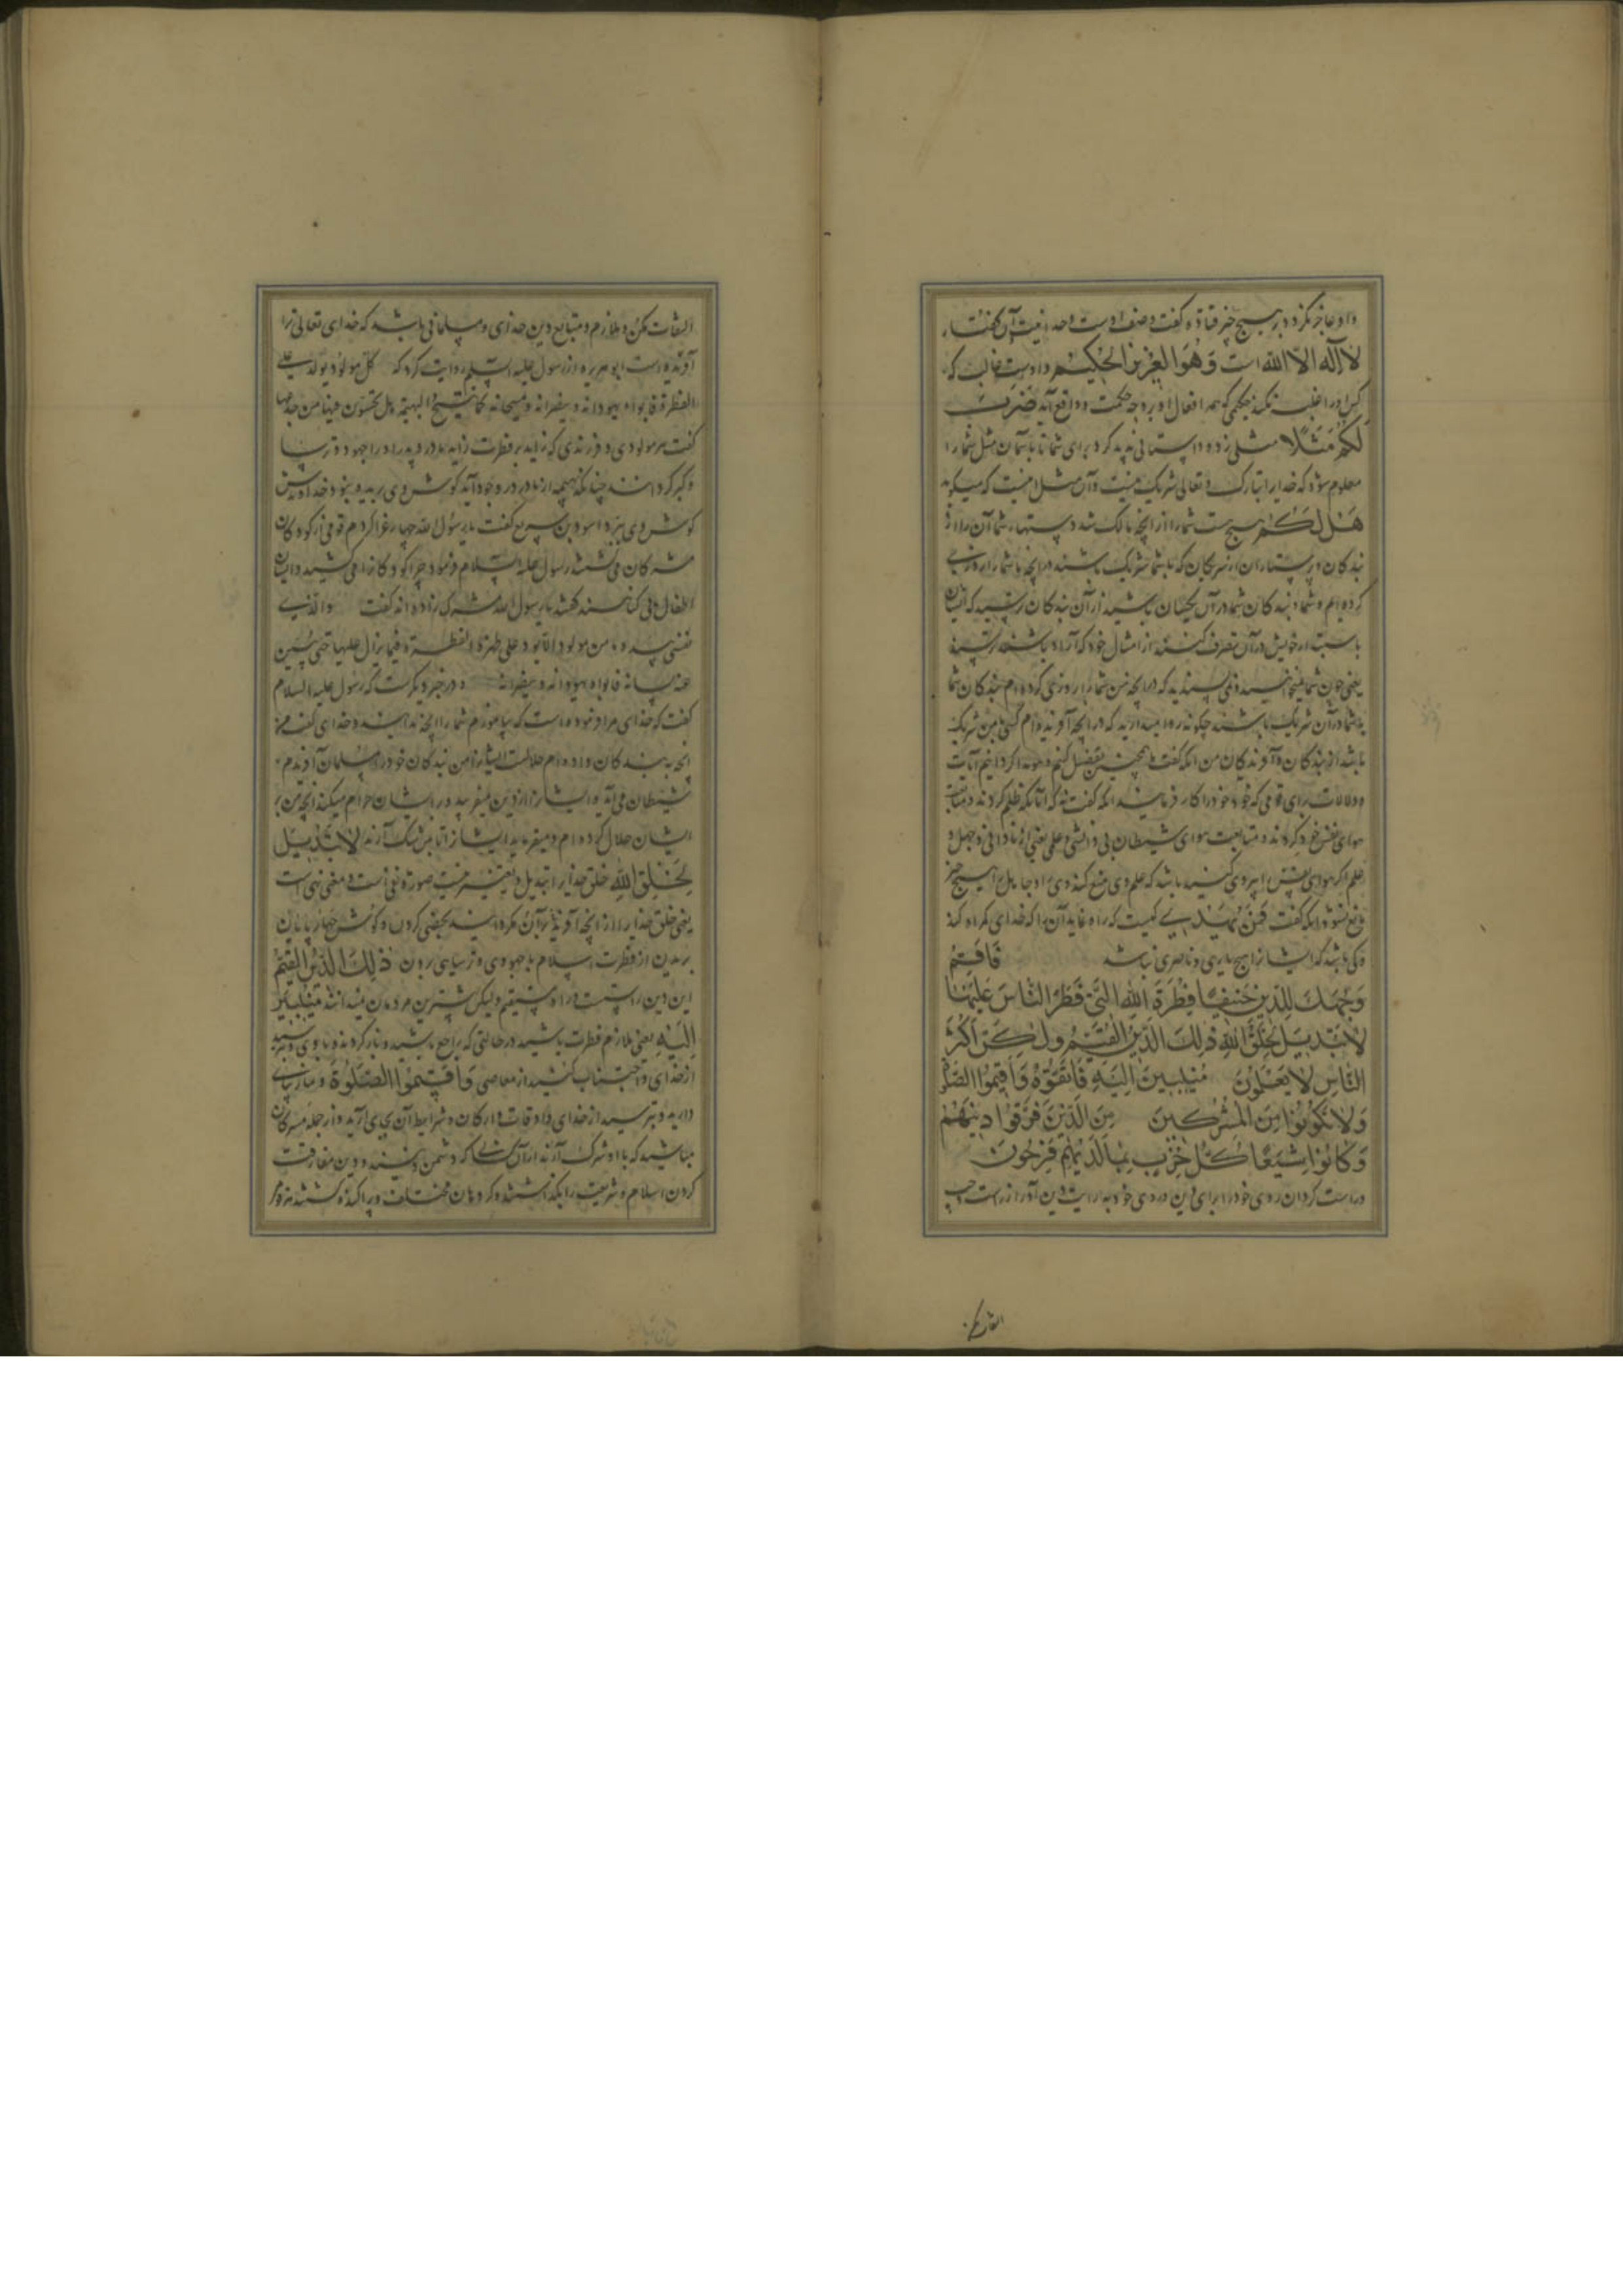 و او عاجز نگردد بر هیچ چیز قتاده گفت وصف اوست وحدانیت آن گفتار
لا اله الا الله است وَهُوَ الْعَزِیزُ الْحَکِیمُ و اوست غالب که
کس او را غلبه نکند حکیمی که همه افعال او بر وجه حکمت و واقع آید ضَرَبَ
لَکُمْ مَثَلًا مثلی زد و داستانی پدید کرد برای شما تا بآن مثل شما را
معلوم شود که خدایرا تبارک و تعالی شریک نیست و آن مثل اینست که میگوید
هَلْ لَکُمْ هیچ هست شما را از آنچه مالک شد دستهاء شما آن را از
بندکان و پرستاران از شریکان که با شما شریک باشند در آنچه ما شما را روزی
کرده ایم و شما و بندکان شما در آن یکسان باشید از آن بندکان ترسید که ایشان
خویش در آن تصرف کنند از امثال خود که آزاد باشند ترسید
یعنی چون شما نمی پسندید که در آنچه من شما را روزی کرده ام بندکان شما
با شما در آن شریک باشند چگونه روا میدارید که در آنچه آفریده ام کسی با من شریک
باشد از بندکان و آفریدکان من آنکه گفت همچنین تفصیل کنیم و هویدا کردانیم آیات
و دلالات برای قومی که خرد خود را کار فرمایند آنکه گفت نه که آنانکه ظلم کردند متابعت
هوای نفس خود کردند و متابعت هوای شیطان بی دانشی و علمی یعنی از نادانی و جهل و
علم اکر هوای نفس را پیروی کنند باشد که علم وی منع کند وی را و جاهل را هیچ چیز
مانع نشود آنکه گفت فَمَنْ یَهْدِی کیست که راه نماید آن را که خدای کمراه کند
و کی باشد که ایشانرا هیچ یاری و ناصری نباشد فَاَقِمْ
وَجْهَکَ لِلدِّینِ حَنِیفًا فِطْرَةَ اللهِ الَّتِی فَطَرَ النَّاسَ عَلَیْهَا
لَا تَبْدِیلَ لِخَلْقِ اللهِ ذٰلِکَ الدِّینُ الْقَیِّمُ وَلٰکِنَّ اَکْثَرَ
النَّاسِ لَا یَعْلَمُونَ مُنِیبِینَ اِلَیْهِ وَاتَّقُوهُ وَاَقِیمُوا الصَّلٰوةَ
وَلَا تَکُونُوا مِنَ الْمُشْرِکِینَ مِنَ الَّذِینَ فَرَّقُوا دِینَهُمْ
وَکَانُوا شِیَعًا کُلُّ حِزْبٍ بِمَا لَدَیْهِمْ فَرِحُونَ
و راست کردان روی خود را برای دین و روی خود به
التفات مکن
التفات مکن و ملازم و متابع دین خدای و مسلمانی باش که خدای تعالی ترا
آفریده است ابو هریره از رسول علیه السلم روایت کرد که کل مولود یولد علی
الفطرة فابواه یهودانه و ینصرانه و یمجسانه کما تنتج البهیمة هل تحسون فیها من جدعا
گفت هر مولودی و فرزندی که زاید بر فطرت زاید مادر و پدر او را جهود و ترسا
و کبر کردانند چنانکه بهیمه از مادر در وجود آید کوش وی بریده نبود خداوندش
کوش وی ببرد اسود بن سریع گفت با رسول الله چهار غزا کردم قومی از کودکان
مشرکان می کشتند رسول علیه السلام فرمود چرا کودکانرا می کشید و ایشان
اطفال بی کناهند گفتند یا رسول الله مشرک زاده اند گفت والذی
نفسی بیده ما من مولود الا یولد علی هذه الفطرة فما یزال علیها حتی یبین
عنه لسانه فابواه یهودانه و ینصرانه و در خبر دیگرست که رسول علیه السلام
گفت که خدای مرا فرموده است که بیاموزم شما را آنچه ندانید و خدای گفت هر
آنچه به بندکان داده ام حلالست ایشانرا من بندکان خود را مسلمان آفریدم
شیطان می آید و ایشانرا از دین میفریبد و بر ایشان حرام میکند آنچه من بر
ایشان حلال کرده ام و میفرماید ایشانرا تا بمن شرک آرند لَا تَبْدِیلَ
لِخَلْقِ اللهِ خلق خدایرا تبدیل و تغییر نیست صورة نفی است و معنی نهی است
یعنی خلق خدایرا از آنچه آفریده بر آن مکردانید بخصی کردن و کوش چهارپایان
بریدن از فطرت اسلام با جهودی و ترسایی بردن ذٰلِکَ الدِّینُ الْقَیِّمُ
این دین راستست و راه مستقیم ولیکن بیشترین مردمان نمیدانند مُنِیبِینَ
اِلَیْهِ یعنی ملازم فطرت باشید در حالتی که راجع باشید و باز کردنده با وی و بترسید
از خدای و اجتناب کنید از معاصی وَاَقِیمُوا الصَّلٰوةَ و نماز بپای
دارید و بترسید از خدای و اوقات و ارکان و شرایط آن بجای آرید و از جمله مشرکان
مباشید که با او شرک آرند از آن کسانی که دین مفارقت
کردن اسلام و شریعت را بگذاشتند و کروهان مختلف و پراکنده کشتند